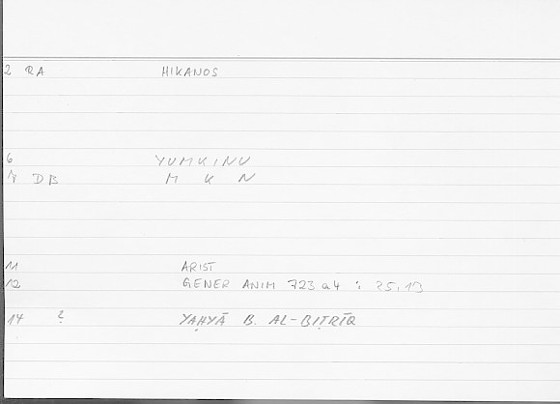 2 RA HIKANOS
6 YUMKINU
7 DB M K N
11 ARIST
12 GENER ANIM 723 a4 : 25,13
14 ? YAḤYĀ B. AL-BIṬRĪQ